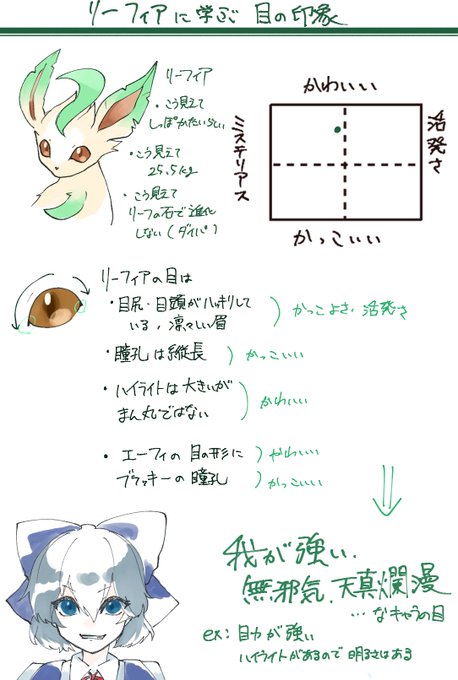 リーフィアに学ぶ 目の印象
リーフィア
・こう見えて
しっぽかたいらしい
・こう見えて
25.5kg
・こう見えて
リーフの石で進化
しない(ダイパ)
かわいい
ミステリアス
活発さ
かっこいい
リーフィアの目は
・目尻・目頭がハッキリして
いる,凛々しい眉
)かっこよさ,活発さ
・瞳孔は縦長
)かっこいい
・ハイライトは大きいが
まん丸ではない
)かわいい
・エーフィの目の形に
)かわいい
ブラッキーの瞳孔
)かっこいい
我が強い,
無邪気,天真爛漫
…なキャラの目
ex:目力が強い
ハイライトがあるので明るさはある